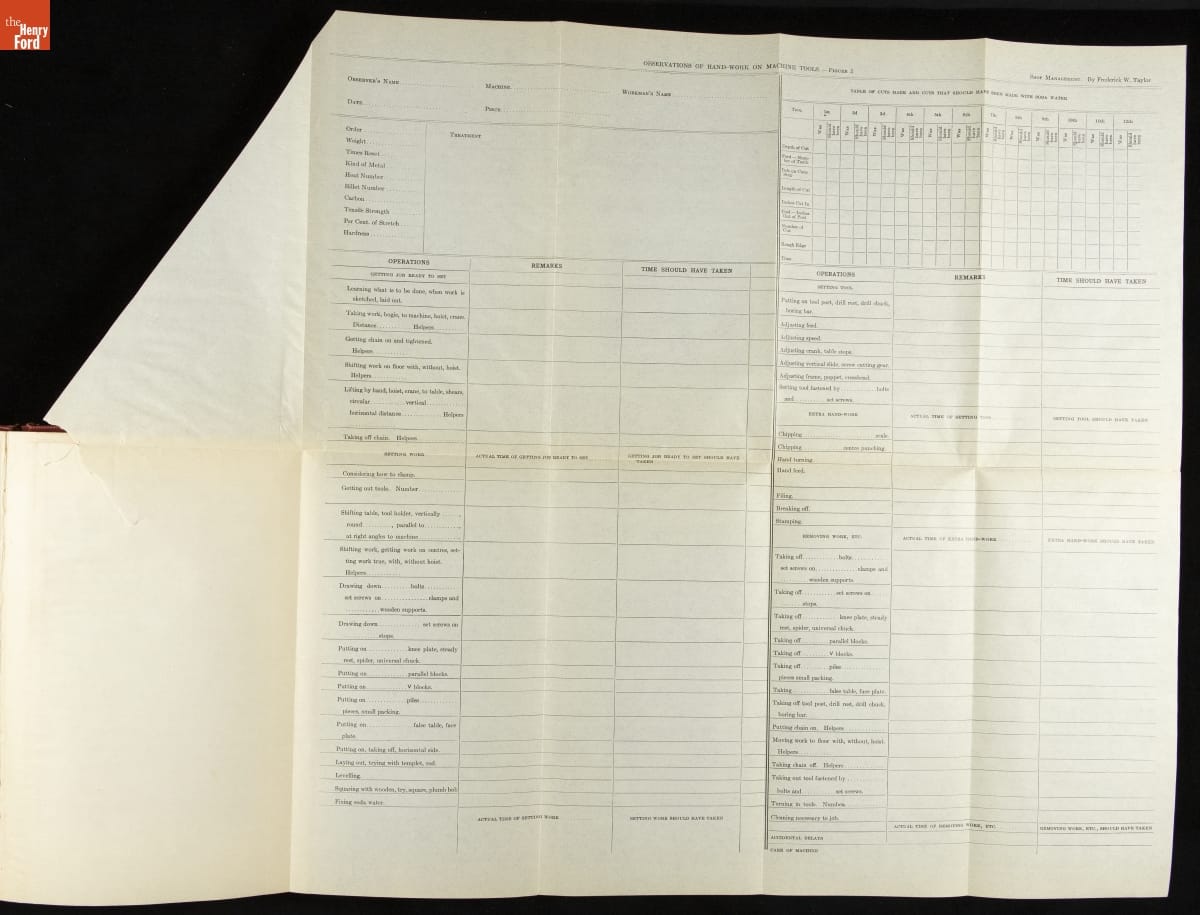 the
Henry
Ford
OBSERVATIONS OF HAND-WORK ON MACHINE TOOLS.—FIGURE 2
SHOP MANAGEMENT. By Frederick W. Taylor
OBSERVER'S NAME
MACHINE
WORKMAN'S NAME
DATE
PIECE
Order
Weight
Times Reset
Kind of Metal
Heat Number
Billet Number
Carbon
Tensile Strength
Per Cent. of Stretch
Hardness
TREATMENT
OPERATIONS REMARKS TIME SHOULD HAVE TAKEN
GETTING JOB READY TO SET
Learning what is to be done, when work is
sketched, laid out.
Taking work, bogie, to machine, hoist, crane.
Distance Helpers
Getting chain on and tightened.
Helpers
Shifting work on floor with, without, hoist.
Helpers
Lifting by hand, hoist, crane, to table, shears,
circular vertical
horizontal distance Helpers
Taking off chain. Helpers
SETTING WORK ACTUAL TIME OF GETTING JOB READY TO SET GETTING JOB READY TO SET SHOULD HAVE
TAKEN
Considering how to clamp.
Getting out tools. Number
Shifting table, tool holder, vertically
round , parallel to
at right angles to machine
Shifting work, getting work on centres, set-
ting work true, with, without hoist.
Helpers
Drawing down bolts
set screws on clamps and
wooden supports.
Drawing down set screws on
stops.
Putting on knee plate, steady
rest, spider, universal chuck.
Putting on parallel blocks.
Putting on V blocks.
Putting on piles
pieces, small packing.
Putting on false table, face
plate.
Putting on, taking off, horizontal side.
Laying out, trying with templet, rod.
Levelling.
Squaring with wooden, try, square, plumb bob
Fixing soda water.
ACTUAL TIME OF SETTING WORK SETTING WORK SHOULD HAVE TAKEN
TABLE OF CUTS MADE AND CUTS THAT SHOULD HAVE BEEN MADE WITH SODA WATER
Tool 1st 2d 3d 4th 5th 6th 7th 8th 9th 10th 11th 12th
Was Should have been Was Should have been Was Should have been Was Should have been Was Should have been Was Should have been Was Should have been Was Should have been Was Should have been Was Should have been Was Should have been Was Should have been
Depth of Cut
Feed—Number of Teeth
Length of Cut
Inches Cut In
Feed—Inches
Number of
Cut
Rough Edge
Time
OPERATIONS REMARKS TIME SHOULD HAVE TAKEN
SETTING TOOL
Putting on tool post, drill rest, drill chuck,
boring bar.
Adjusting feed.
Adjusting speed.
Adjusting crank, table stops.
Adjusting vertical slide, screw cutting gear.
Adjusting frame, poppet, crosshead.
Setting tool fastened by bolts
and set screws.
EXTRA HAND-WORK ACTUAL TIME OF SETTING TOOL SETTING TOOL SHOULD HAVE TAKEN
Chipping scale.
Chipping centre punching.
Hand turning.
Hand feed.
Filing.
Breaking off.
Stamping.
REMOVING WORK, ETC. ACTUAL TIME OF EXTRA HAND-WORK EXTRA HAND-WORK SHOULD HAVE TAKEN
Taking off bolts
set screws on clamps and
wooden supports.
Taking off set screws on
stops.
Taking off knee plate, steady
rest, spider, universal chuck.
Taking off parallel blocks.
Taking off V blocks.
Taking off piles
pieces small packing.
Taking false table, face plate.
Taking off tool post, drill rest, drill chuck,
boring bar.
Putting chain on. Helpers
Moving work to floor with, without, hoist.
Helpers
Taking chain off. Helpers
Taking out tool fastened by
bolts and set screws.
Turning in tools. Number
Cleaning necessary to job.
ACTUAL TIME OF REMOVING WORK, ETC. REMOVING WORK, ETC., SHOULD HAVE TAKEN
ACCIDENTAL DELAYS
CARE OF MACHINE